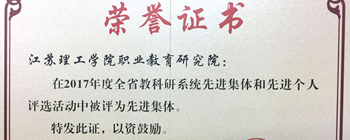 荣誉证书
江苏理工学院职业教育研究院：
在2017年度全省教科研系统先进集体和先进个人
评选活动中被评为先进集体。
特发此证，以资鼓励。